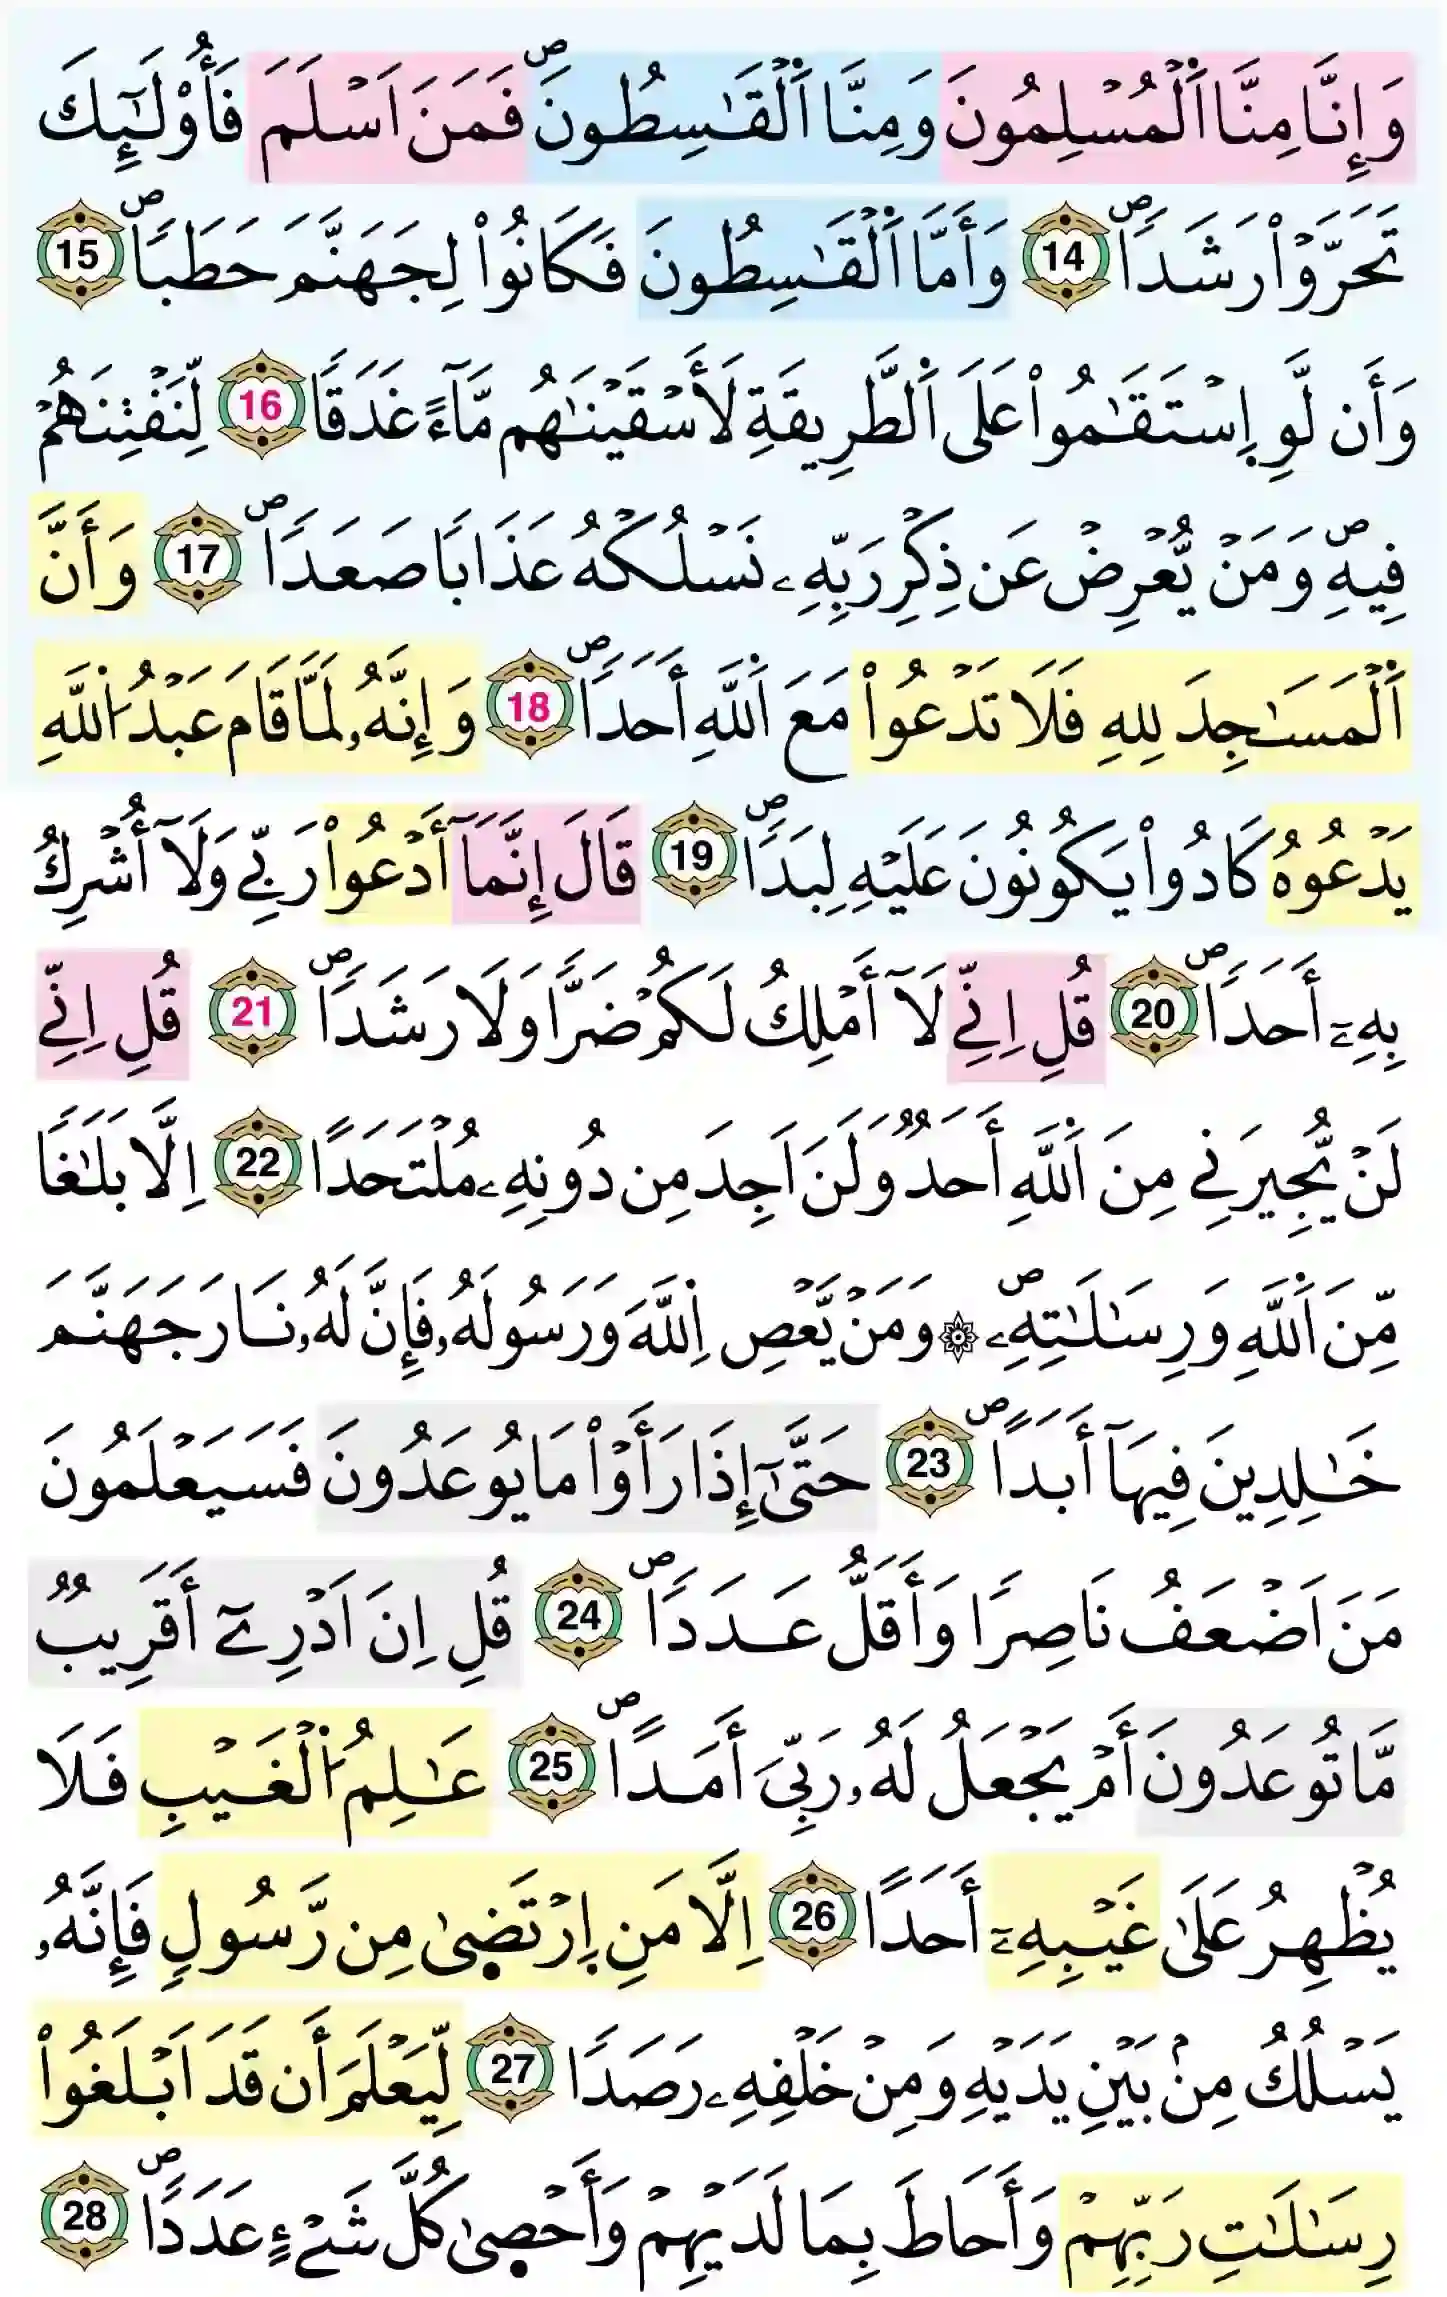 وَإِنَّا مِنَّا اَ۬لْمُسْلِمُونَ وَمِنَّا اَ۬لْقَٰسِطُونَۖ فَمَنَ اَسْلَمَ فَأُوْلَٰٓئِكَ
تَحَرَّوْاْ رَشَداٗۖ 14 وَأَمَّا اَ۬لْقَٰسِطُونَ فَكَانُواْ لِجَهَنَّمَ حَطَباٗۖ 15
وَأَن لَّوِ اِ۪سْتَقَٰمُواْ عَلَى اَ۬لطَّرِيقَةِ لَأَسْقَيْنَٰهُم مَّآءً غَدَقاٗ 16 لِّنَفْتِنَهُمْ
فِيهِۖ وَمَنْ يُّعْرِضْ عَن ذِكْرِ رَبِّهِۦ نَسْلُكْهُ عَذَاباٗ صَعَداٗۖ 17 وَأَنَّ
اَ۬لْمَسَٰجِدَ لِلهِ فَلَا تَدْعُواْ مَعَ اَ۬للَّهِ أَحَداٗۖ 18 وَإِنَّهُۥ لَمَّا قَامَ عَبْدُ اُ۬للَّهِ
يَدْعُوهُ كَادُواْ يَكُونُونَ عَلَيْهِ لِبَداٗۖ 19 قَالَ إِنَّمَآ أَدْعُواْ رَبِّي وَلَآ أُشْرِكُ
بِهِۦٓ أَحَداٗۖ 20 قُلِ اِنِّي لَآ أَمْلِكُ لَكُمْ ضَرّاٗ وَلَا رَشَداٗۖ 21 قُلِ اِنِّي
لَنْ يُّجِيرَنِي مِنَ اَ۬للَّهِ أَحَدٞ وَلَنَ اَجِدَ مِن دُونِهِۦ مُلْتَحَداً 22 اِلَّا بَلَٰغاٗ
مِّنَ اَ۬للَّهِ وَرِسَٰلَٰتِهِۦۖ ۞ وَمَنْ يَّعْصِ اِ۬للَّهَ وَرَسُولَهُۥ فَإِنَّ لَهُۥ نَارَ جَهَنَّمَ
خَٰلِدِينَ فِيهَآ أَبَداٗۖ 23 حَتَّىٰٓ إِذَا رَأَوْاْ مَا يُوعَدُونَ فَسَيَعْلَمُونَ
مَنَ اَضْعَفُ نَاصِراٗ وَأَقَلُّ عَدَداٗۖ 24 قُلِ اِنَ اَدْرِےٓ أَقَرِيبٞ
مَّا تُوعَدُونَ أَمْ يَجْعَلُ لَهُۥ رَبِّيَ أَمَداٗۖ 25 عَٰلِمُ اُ۬لْغَيْبِ فَلَا
يُظْهِرُ عَلَىٰ غَيْبِهِۦٓ أَحَداً 26 اِلَّا مَنِ اِ۪رْتَض۪ىٰ مِن رَّسُولٖ فَإِنَّهُۥ
يَسْلُكُ مِنۢ بَيْنِ يَدَيْهِ وَمِنْ خَلْفِهِۦ رَصَداٗ 27 لِّيَعْلَمَ أَن قَدَ اَبْلَغُواْ
رِسَٰلَٰتِ رَبِّهِمْ وَأَحَاطَ بِمَا لَدَيْهِمْ وَأَحْص۪ىٰ كُلَّ شَےْءٍ عَدَداٗۖ 28